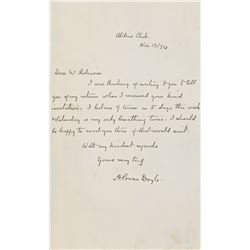 Aldine Club
Nov 13/94
Dear Mr Robinson
I was thinking of writing to you to tell
you of my return when I received your kind
invitation. I lecture 9 times in 5 days this week
& Saturday is my only breathing time. I should
be happy to meet you then if that would suit.
With my kindest regards
Yours very truly
A Conan Doyle.